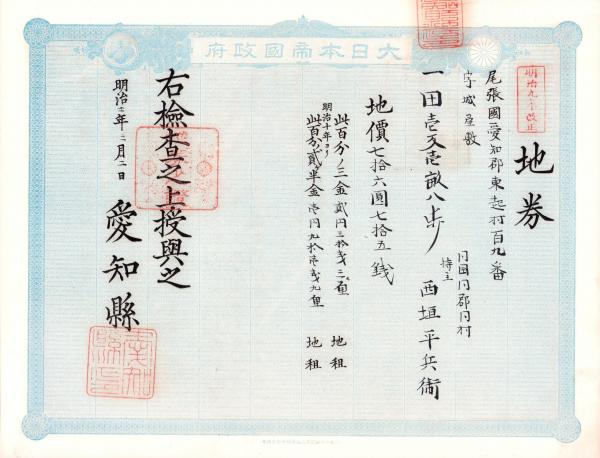 大日本帝國政府
明治九年改正
地券
尾張國愛知郡東起村百九番
字城屋敷
同国同郡同村
一田壱反壱畝八歩 持主 西垣平兵衛
地價七拾六圓七拾五錢
此百分ノ三金貳円三拾銭三厘 地租
明治十年ヨリ
此百分ノ貳半金壱円九拾壱銭九厘 地租
右檢查之上授與之
明治十二年二月二日 愛知縣
愛知縣印